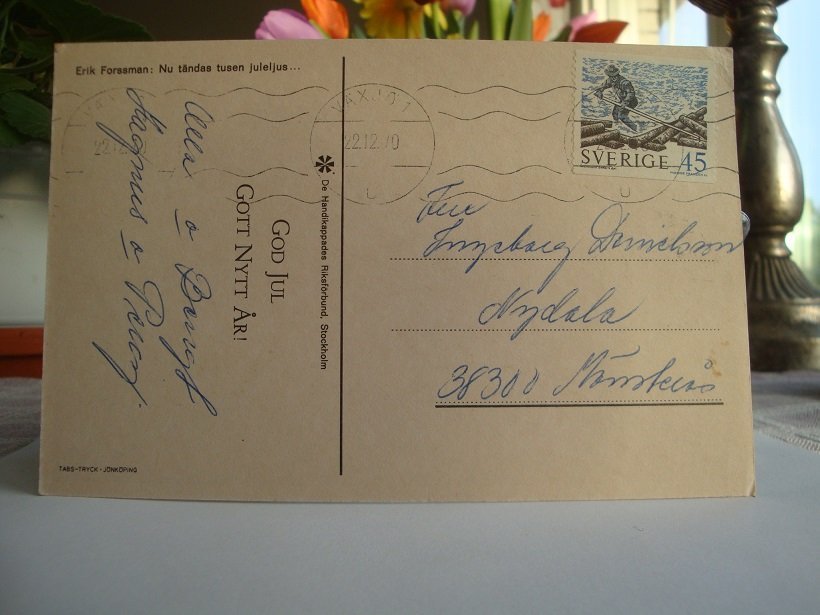 Erik Forssman: Nu tändas tusen juleljus...
VÄXJÖ 1
22.12.70
SVERIGE 45
De Handikappades Riksförbund, Stockholm
GOD JUL
GOTT NYTT ÅR!
Alla o Bengt
Magnus o
Fru
Ingeborg Danielsson
Nydala
38300 Mönsterås
TABS-TRYCK • JÖNKÖPING